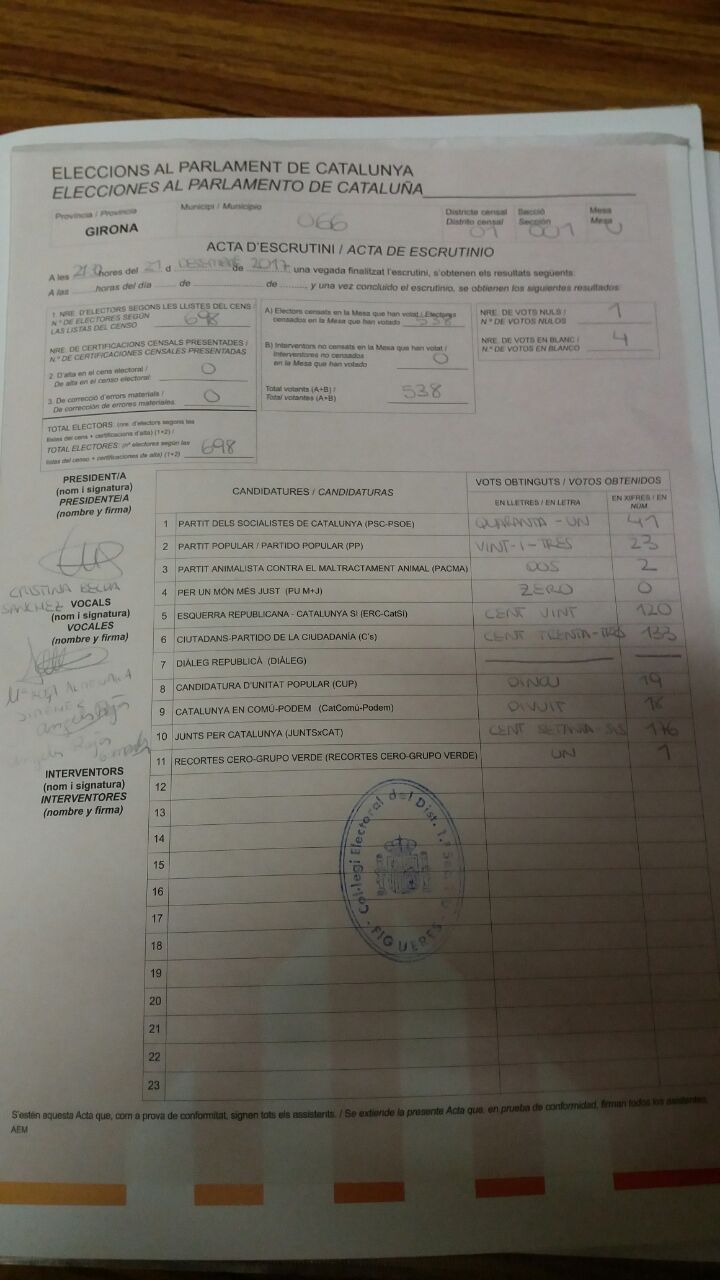 ELECCIONS AL PARLAMENT DE CATALUNYA
ELECCIONES AL PARLAMENTO DE CATALUÑA
Província / Provincia
GIRONA
Municipi / Municipio
066
Districte censal
Distrito censal
01
Secció
Sección
001
Mesa
Mesa
U
ACTA D'ESCRUTINI / ACTA DE ESCRUTINIO
A les hores del 21 d DESEMBRE de 2017, una vegada finalitzat l'escrutini, s'obtenen els resultats següents:
A las horas del día de de y una vez concluido el escrutinio, se obtienen los siguientes resultados:
1. NRE. D'ELECTORS SEGONS LES LLISTES DEL CENS /
N.º DE ELECTORES SEGÚN
LAS LISTAS DEL CENSO
698
NRE. DE CERTIFICACIONS CENSALS PRESENTADES /
N.º DE CERTIFICACIONES CENSALES PRESENTADAS
2. D'alta en el cens electoral /
De alta en el censo electoral:
0
3. De correcció d'errors materials /
De corrección de errores materiales.
0
TOTAL ELECTORS: (nre. d'electors segons les
llistes del cens + certificacions d'alta) (1+2) /
TOTAL ELECTORES: (nº electores según las
listas del censo + certificaciones de alta) (1+2)
698
A) Electors censats en la Mesa que han votat / Electores
censados en la Mesa que han votado
538
B) Interventors no censats en la Mesa que han votat /
Interventores no censados
en la Mesa que han votado
0
Total votants (A+B) /
Total votantes (A+B)
538
NRE. DE VOTS NULS /
N.º DE VOTOS NULOS
1
NRE. DE VOTS EN BLANC /
N.º DE VOTOS EN BLANCO
4
PRESIDENT/A
(nom i signatura)
PRESIDENTE/A
(nombre y firma)
CRISTINA
SANCHEZ
VOCALS
(nom i signatura)
VOCALES
(nombre y firma)
INTERVENTORS
(nom i signatura)
INTERVENTORES
(nombre y firma)
CANDIDATURES / CANDIDATURAS
VOTS OBTINGUTS / VOTOS OBTENIDOS
EN LLETRES / EN LETRA
EN XIFRES / EN NÚM.
1 PARTIT DELS SOCIALISTES DE CATALUNYA (PSC-PSOE) QUARANTA - UN 41
2 PARTIT POPULAR / PARTIDO POPULAR (PP) VINT-I-TRES 23
3 PARTIT ANIMALISTA CONTRA EL MALTRACTAMENT ANIMAL (PACMA) DOS 2
4 PER UN MÓN MÉS JUST (PU M+J) ZERO 0
5 ESQUERRA REPUBLICANA - CATALUNYA SÍ (ERC-CatSí) CENT VINT 120
6 CIUTADANS-PARTIDO DE LA CIUDADANÍA (C's) CENT TRENTA-TRES 133
7 DIÀLEG REPUBLICÀ (DIÀLEG)
8 CANDIDATURA D'UNITAT POPULAR (CUP) DINOU 19
9 CATALUNYA EN COMÚ-PODEM (CatComú-Podem) DIVUIT 18
10 JUNTS PER CATALUNYA (JUNTSxCAT) CENT SETANTA-SIS 176
11 RECORTES CERO-GRUPO VERDE (RECORTES CERO-GRUPO VERDE) UN 1
12
13
14
15
16
17
18
19
20
21
22
23
Col·legi Electoral del Dist. 1.
- FIGUERES -
S'estén aquesta Acta que, com a prova de conformitat, signen tots els assistents. / Se extiende la presente Acta que, en prueba de conformidad, firman todos los asistentes.
AEM